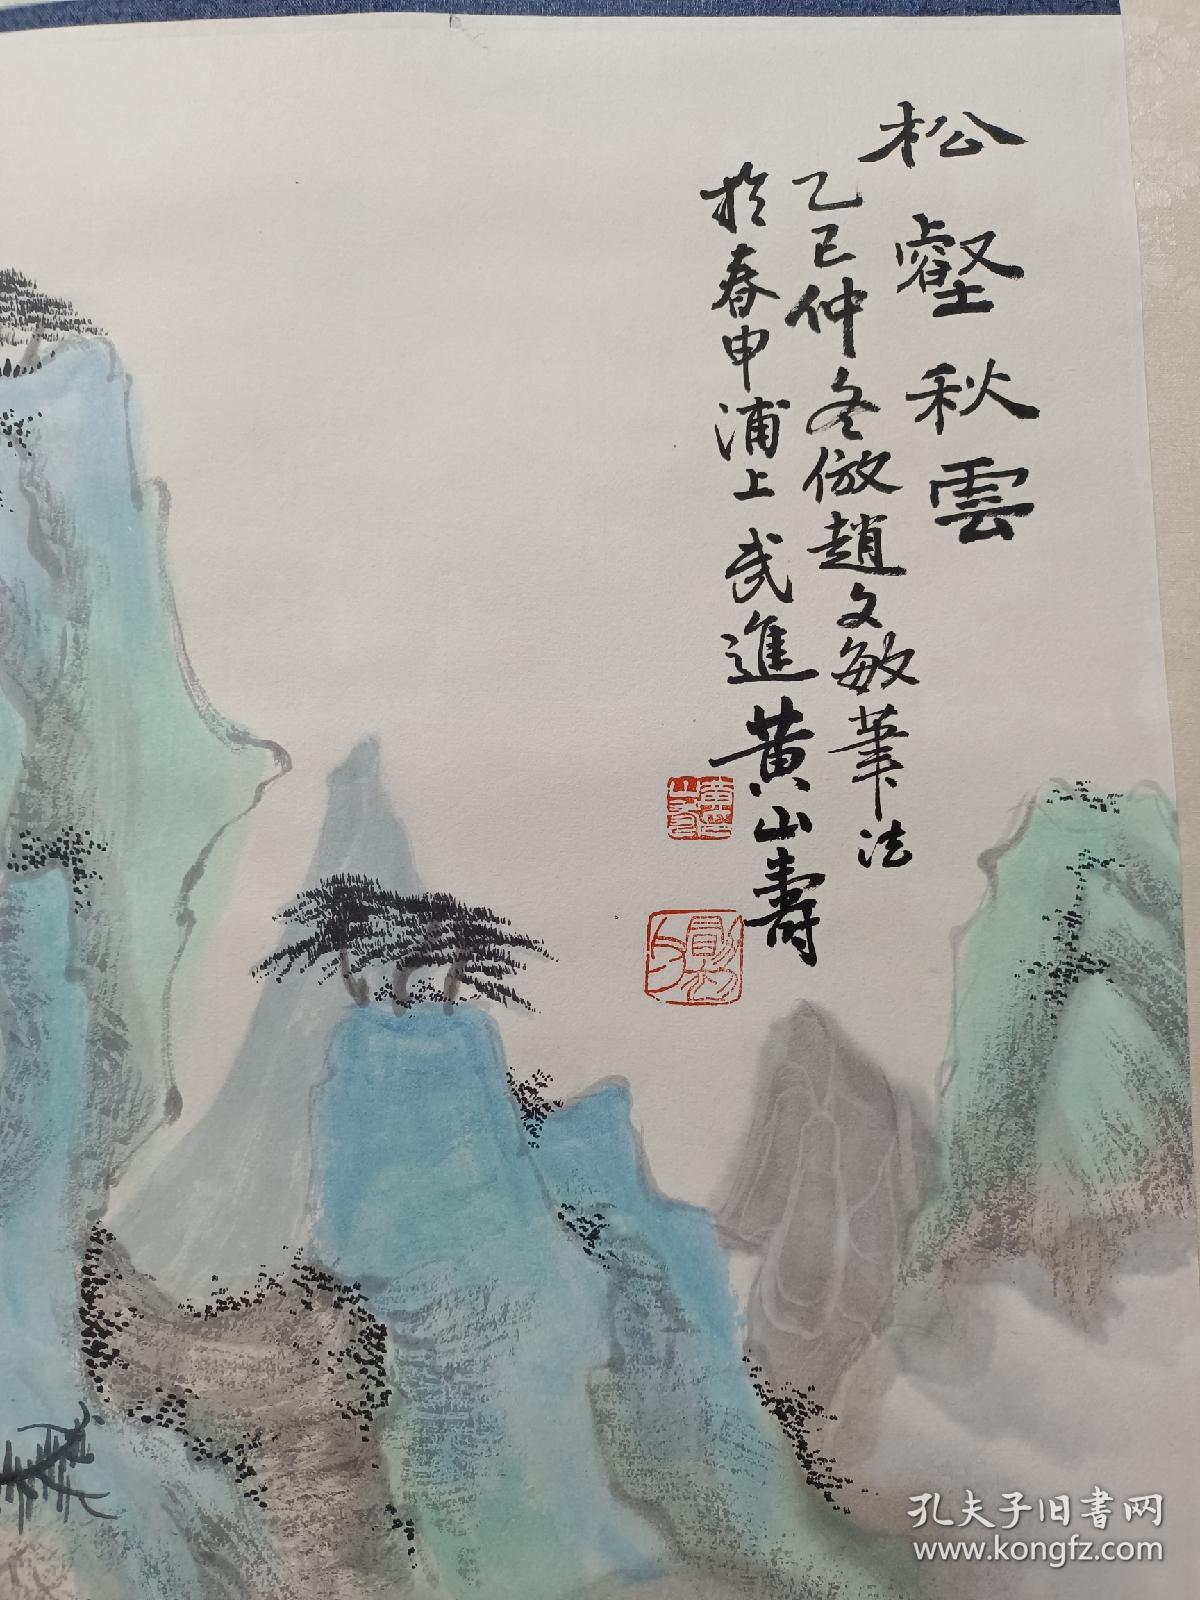 松壑秋雲
乙巳仲冬倣趙文敏筆法
於春申浦上武進黃山壽
孔夫子旧书网
www.kongfz.com